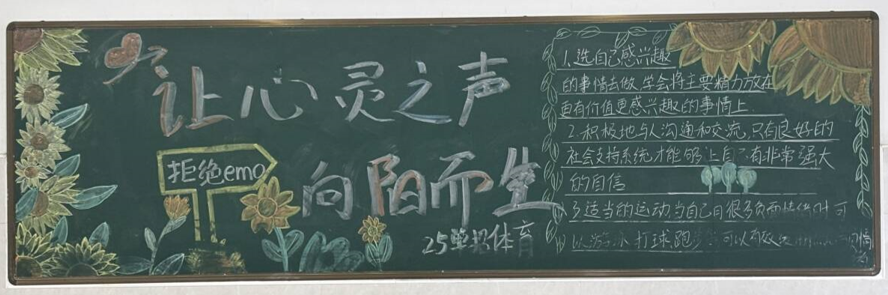 让心灵之声
向阳而生
拒绝emo
25单招体育
1.选自己感兴趣
的事情去做,学会将主要精力放在
更有价值更感兴趣的事情上
2.积极地与人沟通和交流,只有良好的
社会支持系统,才能够让自己有非常强大
的自信
3.适当的运动当自己有很多负面情绪时可
以游泳 打球 跑步 可以有效